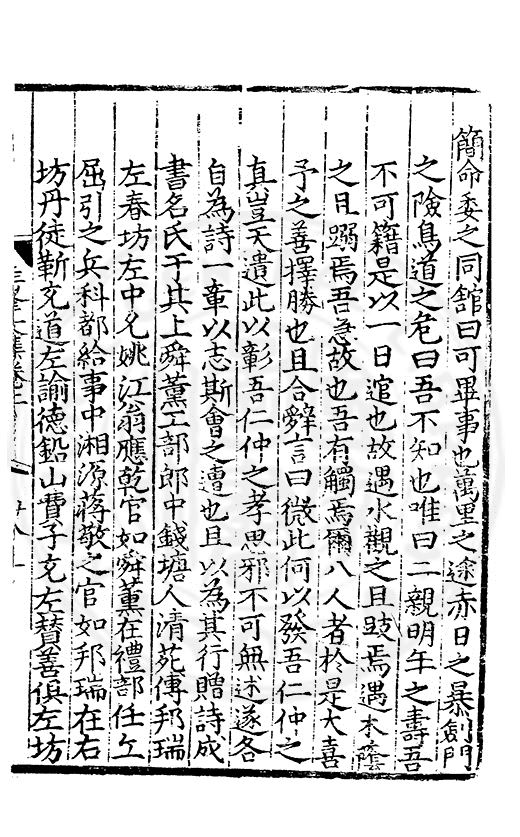 簡命委之同舘曰可畢事也萬里之途赤日之暴劍門
之險鳥道之危曰吾不知也唯曰二親明年之壽吾
不可籍是以一日逭也故遇水觀之且跂焉遇木蔭
之且躅焉吾急故也吾有觸焉爾八人者於是大喜
予之善擇勝也且合辭言曰微此何以發吾仁仲之
真豈天遺此以彰吾仁仲之孝思邪不可無述遂各
自為詩一章以志斯會之遭也且以為其行贈詩成
書名氏于其上舜薰工部郎中錢塘人清苑傅邦瑞
左春坊左中允姚江翁應乾官如舜薰在禮部任丘
屈引之兵科都給事中湘源蔣敬之官如邦瑞在右
坊丹徒靳充道左諭德鉛山費子充左賛善俱左坊